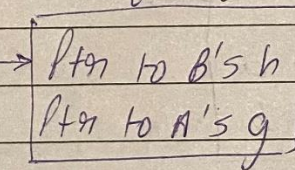 Ptr to B's h
Ptr to A's g